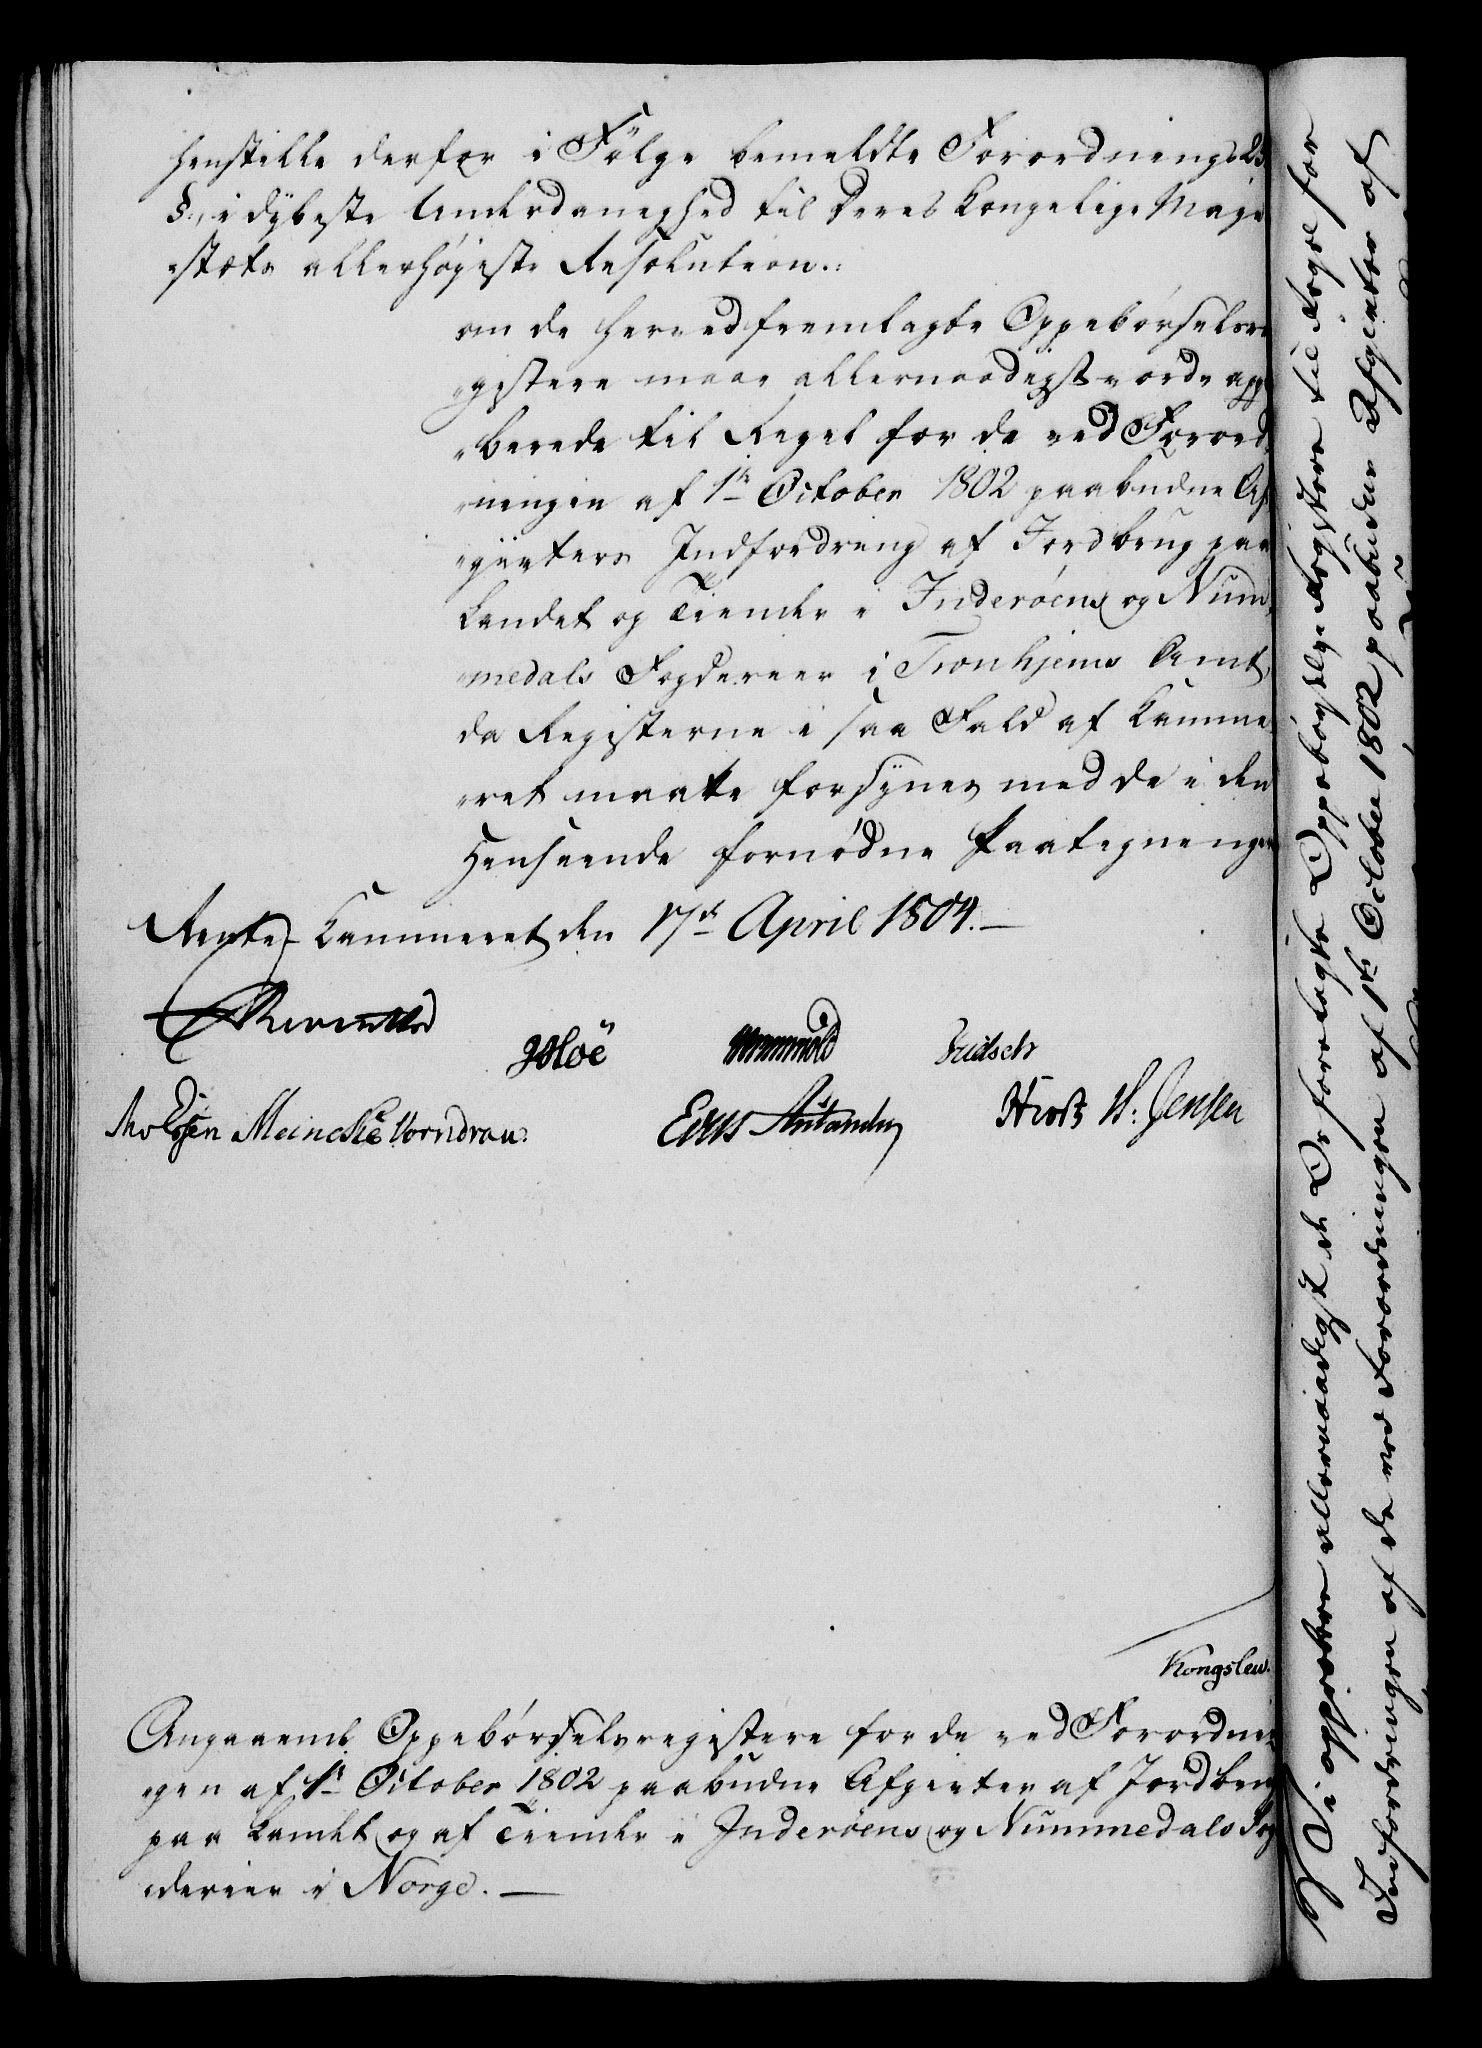 henstille derfor i Følge bemeldte Forordnings 23
§., i dybeste Underdanighed til Deres Kongelige Maje
stæts allerhøieste Resolution:
om de herved fremlagte Oppebørselsre
gistere maae allernaadigst vorde appro
berede til Regel for de ved Forord
ningen af 1te October 1802 paabudne Af
givters Indfordring af Jordbrug paa
Landet og Tiender i Inderøens og Num
medals Fogderier i Tronhjems Amt,
da Registerne i saa Fald af Kamme
ret maatte forsynes med de i den
Henseende fornødne Paategninger
Rente-Kammeret den 17de April 1804.
Reventlow
Wormskiold
Meincke Vorndran.
W: Jensen
Kongslew.
Angaaende Oppebørselsregistere for de ved Forordnin
gen af 1te October 1802 paabudne Afgivter af Jordbrug
paa Landet og af Tiender i Inderøens og Nummedals Fog
derier i Norge.
Vi approbere allernaadigst at De foretagte Oppebørsels-Registere til Regel for
Indfordringen af de ved Forordningen af 1te October 1802 paabudne Afgivter af